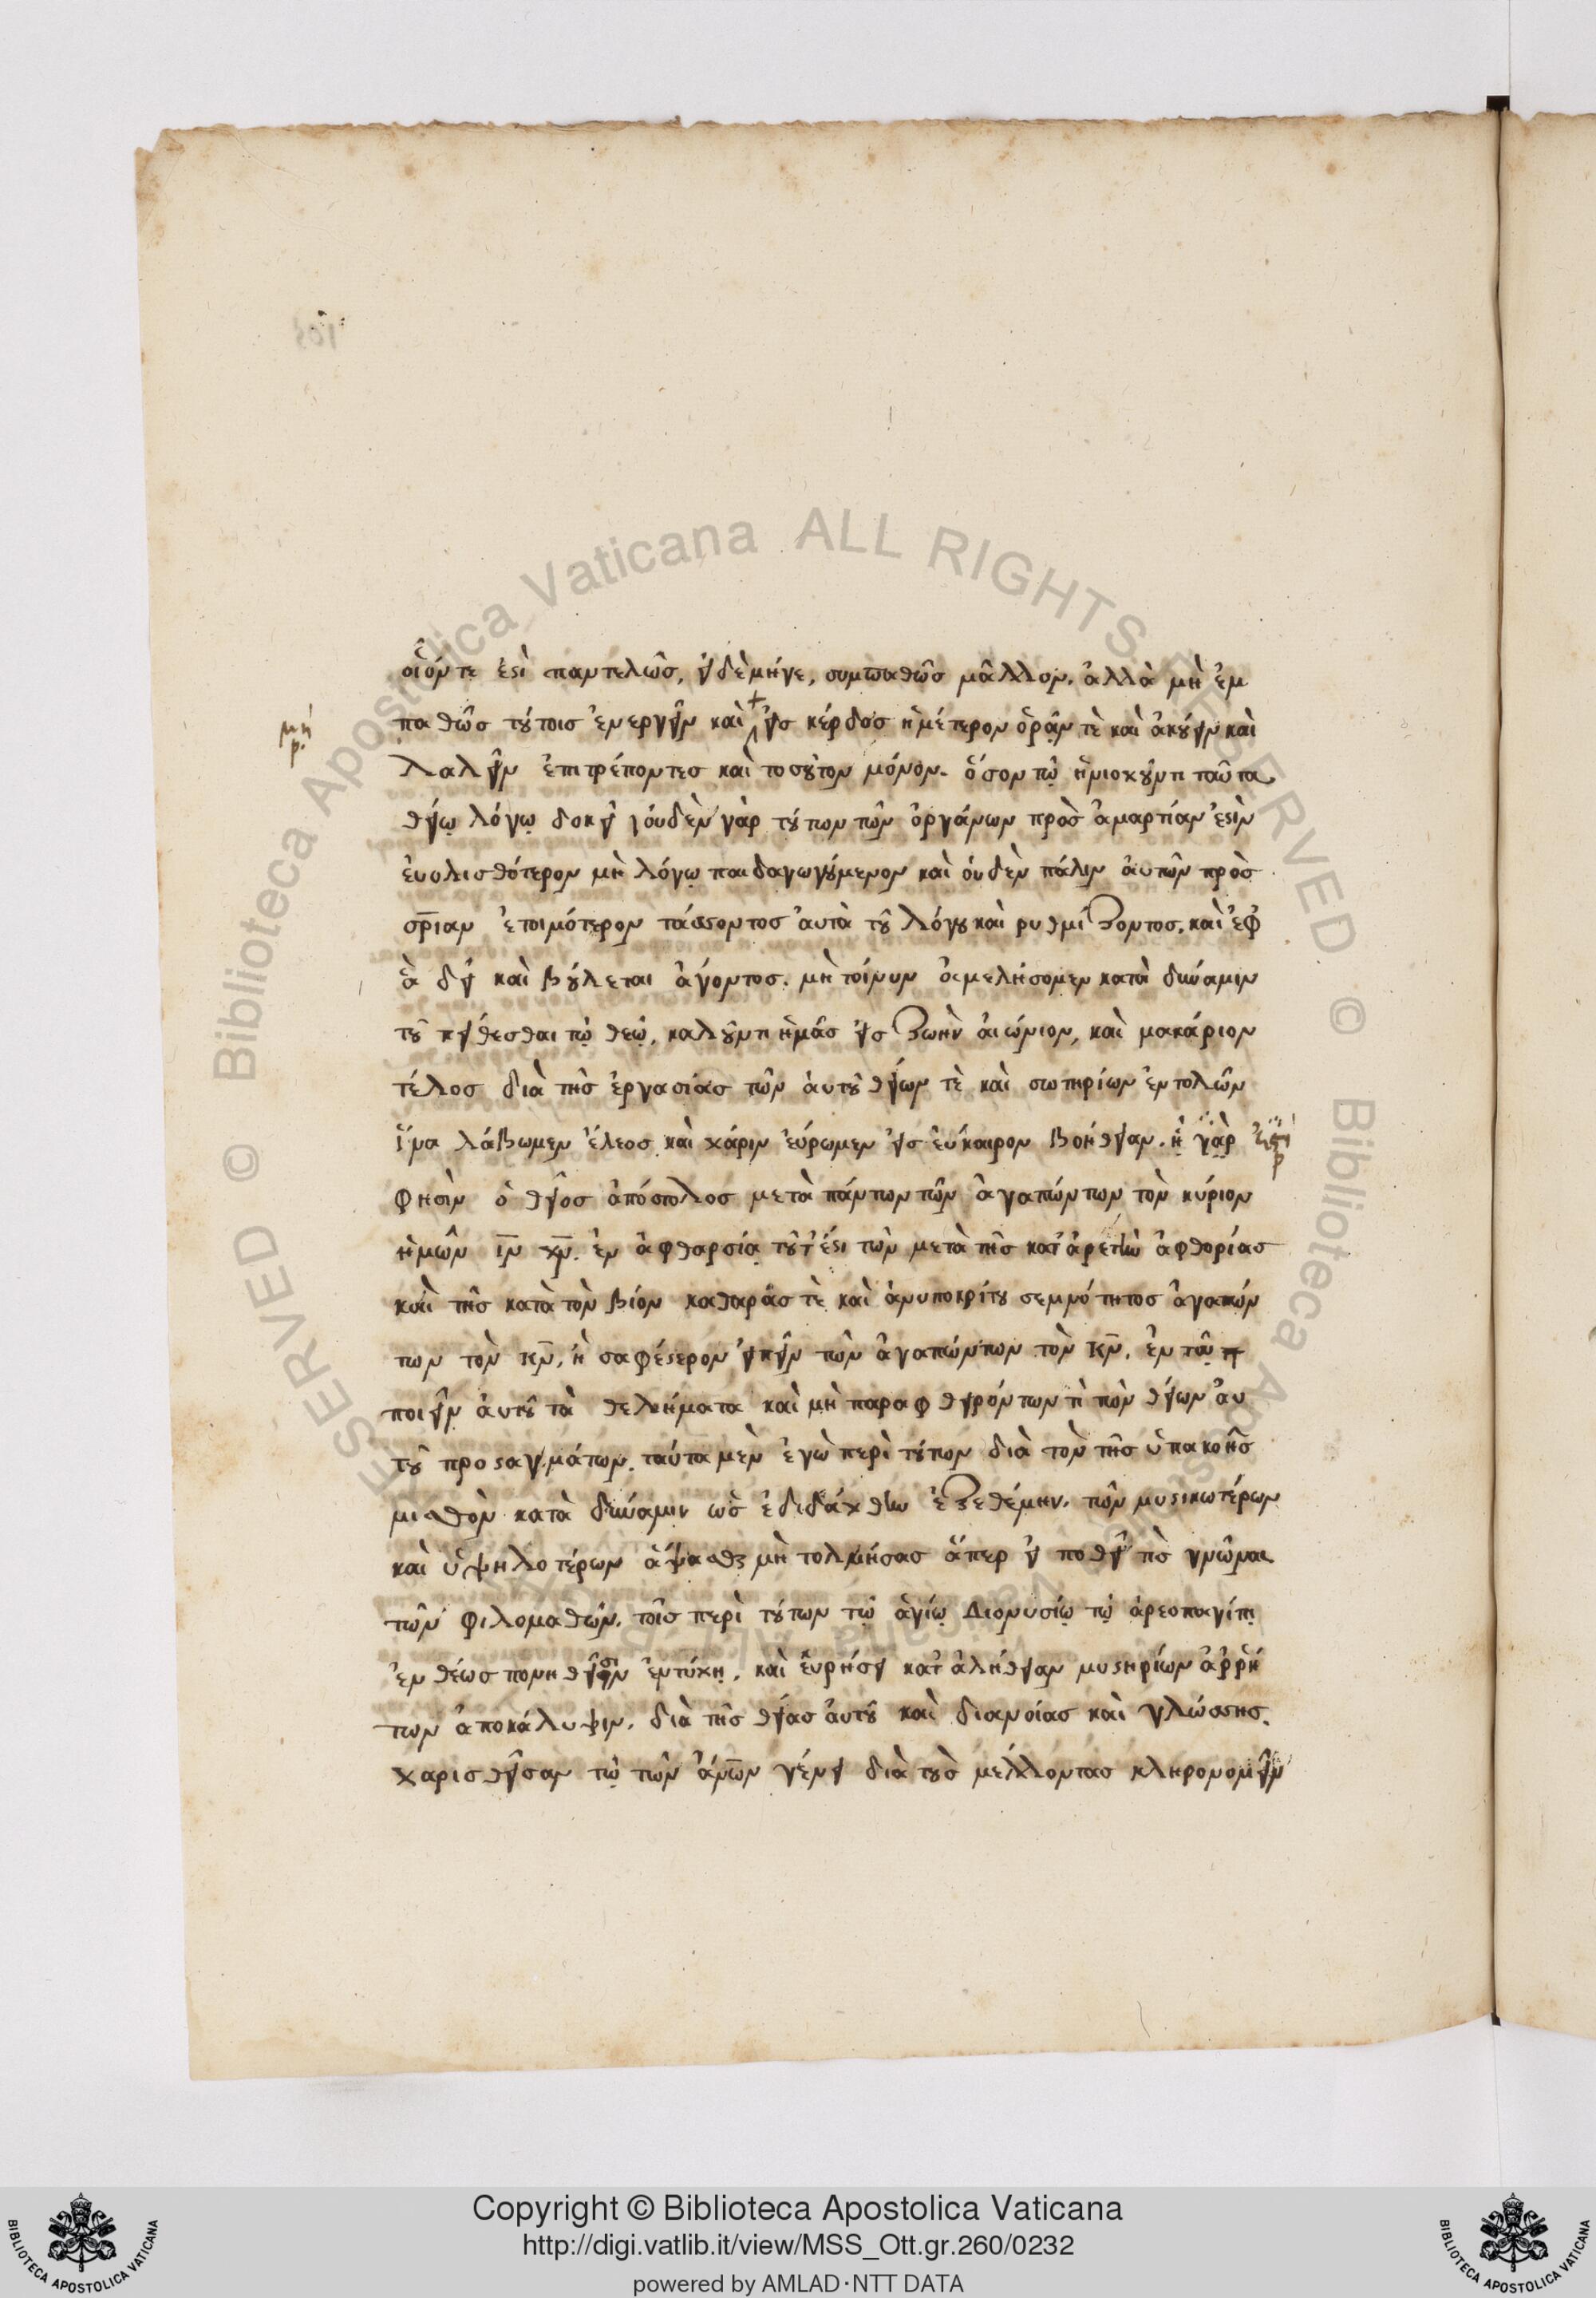 οἷόντε ἐστὶ παντελῶς, εἰ δὲ μήγε, συμπαθῶς μᾶλλον. ἀλλὰ μὴ ἐμ
παθῶς τούτοις ἐνεργεῖν καὶ εἰς κέρδος ἡμέτερον ὁρᾶν τὲ καὶ ἀκούειν καὶ
μή
λαλεῖν ἐπιτρέποντες καὶ τοσοῦτον μόνον. ὅσον τῷ ἡνιοχοῦντι ταῦτα
θείῳ λόγῳ δοκεῖ οὐδὲν γὰρ τούτων τῶν ὀργάνων πρὸς ἁμαρτίαν ἐστὶν
εὐολισθότερον μὴ λόγῳ παιδαγωγούμενον καὶ οὐδὲν πάλιν αὐτῶν πρὸς
σρίαν ἑτοιμότερον τάσσοντος αὐτὰ τοῦ λόγου καὶ ρυθμίζοντος. καὶ ἐφ
ἃ δεῖ καὶ βούλεται ἄγοντος. μὴ τοίνυν ἀμελήσομεν κατὰ δύναμιν
τοῦ πείθεσθαι τῷ θεῷ, καλοῦντι ἡμᾶς εἰς ζωὴν αἰώνιον, καὶ μακάριον
τέλος διὰ τῆς ἐργασίας τῶν αὐτοῦ θείων τὲ καὶ σωτηρίων ἐντολῶν
ἵνα λάβωμεν ἔλεος καὶ χάριν εὕρωμεν εἰς εὔκαιρον βοήθειαν. ἡ γὰρ
φησὶν ὁ θεῖος ἀπόστολος μετὰ πάντων τῶν ἀγαπώντων τὸν κύριον
ἡμῶν ιν χν. ἐν ἀφθαρσίᾳ τουτέστι τῶν μετὰ τῆς κατ ἀρετὴν ἀφθορίας
καὶ τῆς κατὰ τὸν βίον καθαρᾶς τὲ καὶ ἀνυποκρίτου σεμνότητος ἀγαπών
των τὸν κν, ἢ σαφέστερον εἰπεῖν τῶν ἀγαπώντων τὸν κν, ἐν τῷ
ποιεῖν αὐτοῦ τὰ θελήματα καὶ μὴ παραφθειρόντων τὶ τῶν θείων αὐ
τοῦ προσταγμάτων. ταῦτα μὲν ἐγὼ περὶ τούτων διὰ τὸν τῆς ὑπακοῆς
μισθὸν κατὰ δύναμιν ὡς ἐδιδάχθην ἐξεθέμην. τῶν μυστικωτέρων
καὶ ὑψηλοτέρων ἅψασθαι μὴ τολμήσας ἅπερ εἰ ποθεῖ τὶς γνῶναι
τῶν φιλομαθῶν. τοῖς περὶ τούτων τῷ ἁγίῳ Διονυσίῳ τῷ ἀρεοπαγίτῃ
ἐνθέως πονηθεῖσιν ἐντύχῃ, καὶ εὑρήσει κατ ἀλήθειαν μυστηρίων ἀρρή
των ἀποκάλυψιν. διὰ τῆς θείας αὐτοῦ καὶ διανοίας καὶ γλώσσης.
χαρισθεῖσαν τῷ τῶν ἀνων γένει διὰ τοὺς μέλλοντας κληρονομεῖν
Copyright © Biblioteca Apostolica Vaticana
http://digi.vatlib.it/view/MSS_Ott.gr.260/0232
powered by AMLAD·NTT DATA